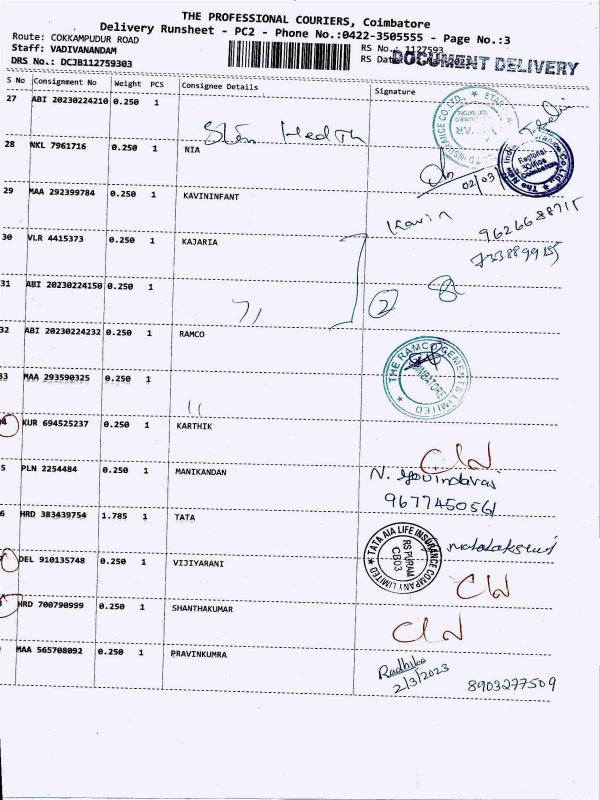 THE PROFESSIONAL COURIERS, Coimbatore
Delivery Runsheet - PC2 - Phone No.:0422-3505555 - Page No.:3
Route: COKKAMPUDUR ROAD
Staff: VADIVANANDAM
DRS No.: DCJB112759303
RS No.: 1127593
RS Dat
DOCUMENT DELIVERY
S No Consignment No Weight PCS Consignee Details Signature
27 ABI 20230224210 0.250 1
28 NKL 7961716 0.250 1 NIA
02/03
Regional Office
29 MAA 292399784 0.250 1 KAVININFANT
Kavin
9626688715
30 VLR 4415373 0.250 1 KAJARIA
7338899155
31 ABI 20230224150 0.250 1
2
32 ABI 20230224232 0.250 1 RAMCO
THE RAMCO CEMENTS LIMITED
33 MAA 293590325 0.250 1
4 KUR 694525237 0.250 1 KARTHIK
5 PLN 2254484 0.250 1 MANIKANDAN
N. Govindaraj
9677450561
6 HRD 383439754 1.785 1 TATA
TATA AIA LIFE INSURANCE COMPANY LIMITED
RS PURAM
CB03
DEL 910135748 0.250 1 VIJIYARANI
HRD 700790999 0.250 1 SHANTHAKUMAR
MAA 565708092 0.250 1 PRAVINKUMRA
Radhika
2/3/2023
8903277509